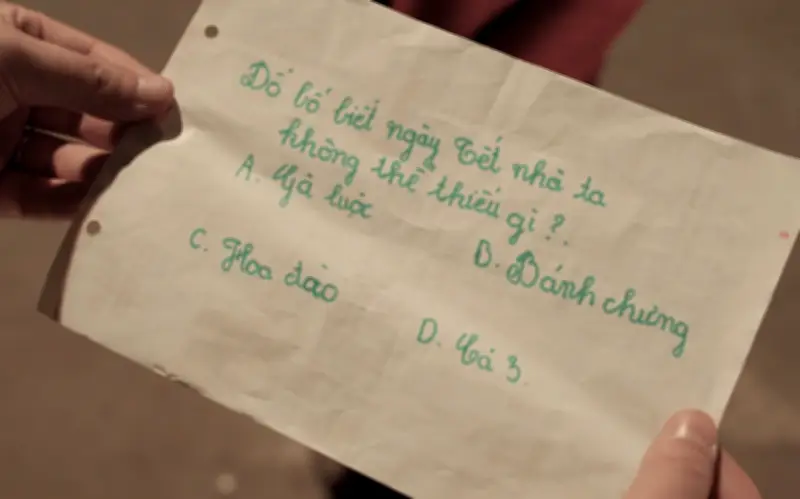 Đố bố biết ngày Tết nhà ta
không thể thiếu gì?.
A. Gà luộc
B. Bánh chưng
C. Hoa đào
D. Cả 3